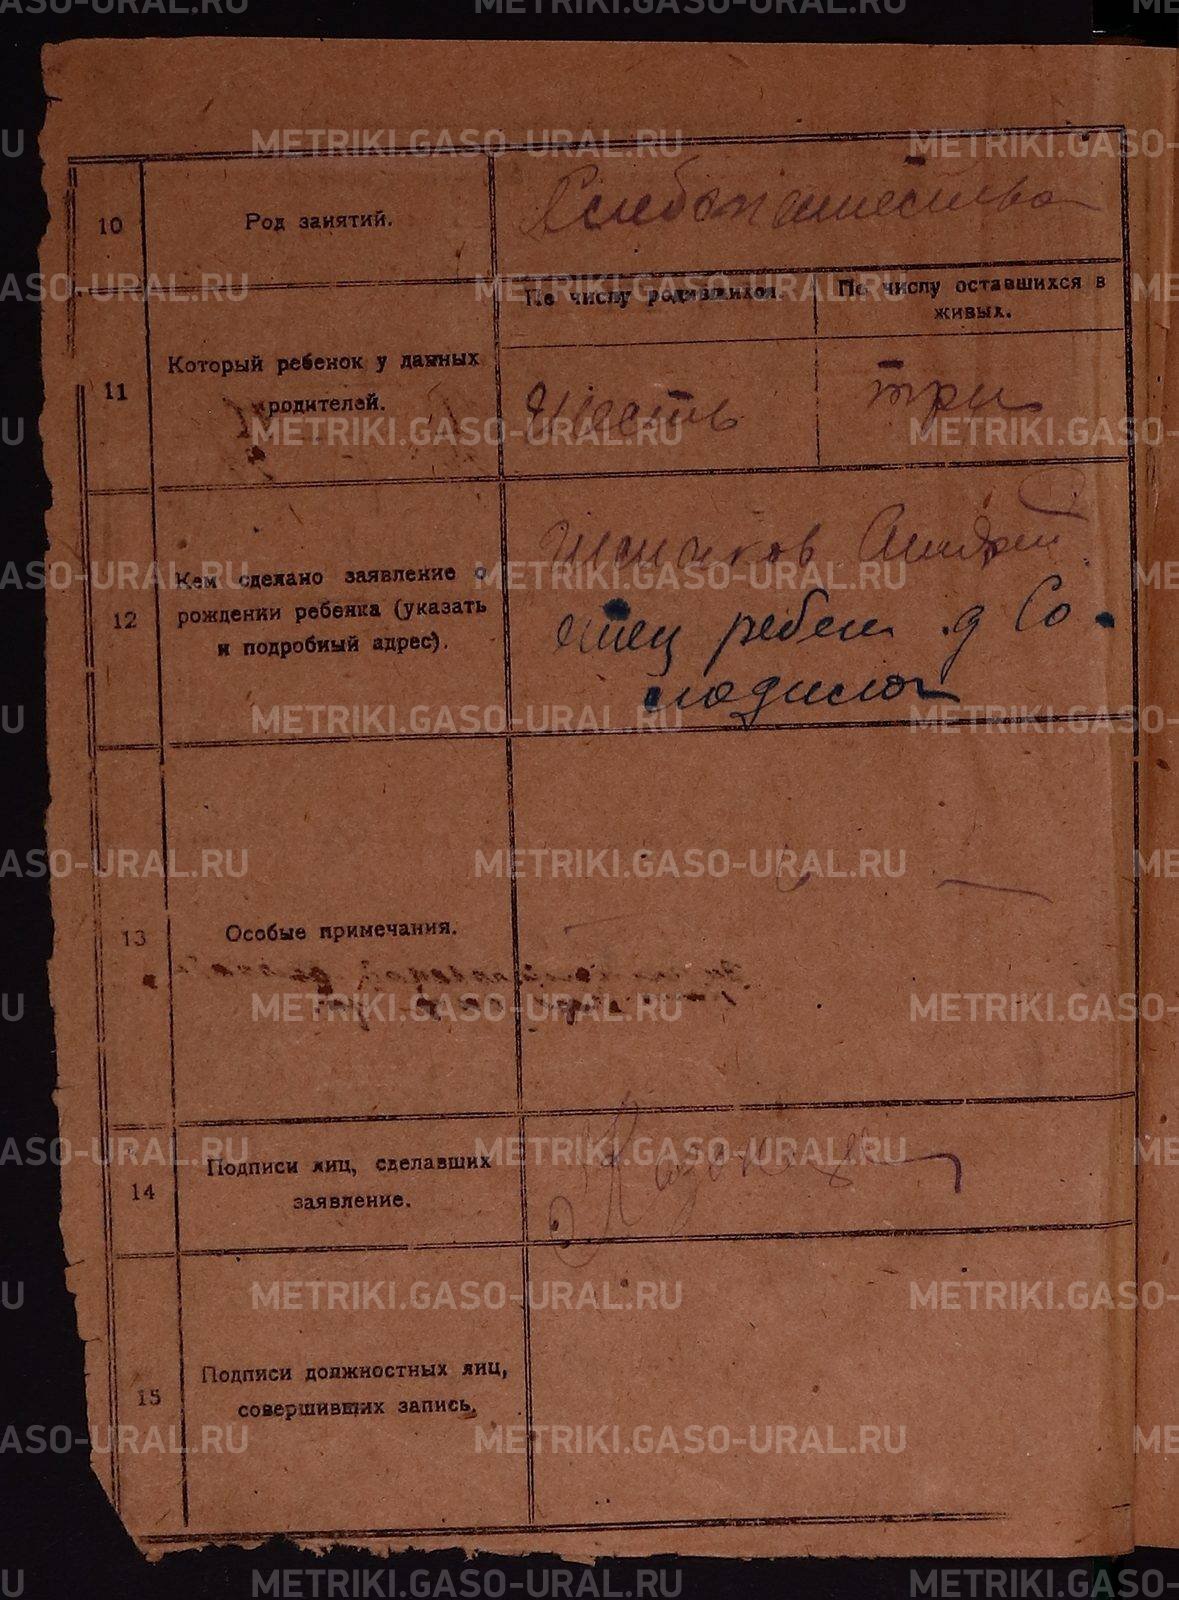 10
Род занятий.
Хлебопашество
11
Который ребенок у данных
родителей.
По числу родившихся.
По числу оставшихся в
живых.
Шесть
три
12
Кем сделано заявление о
рождении ребенка (указать
и подробный адрес).
Андрей
отец ребен д Со
13
Особые примечания.
14
Подписи лиц, сделавших
заявление.
15
Подписи должностных лиц,
совершивших запись.
METRIKI.GASO-URAL.RU